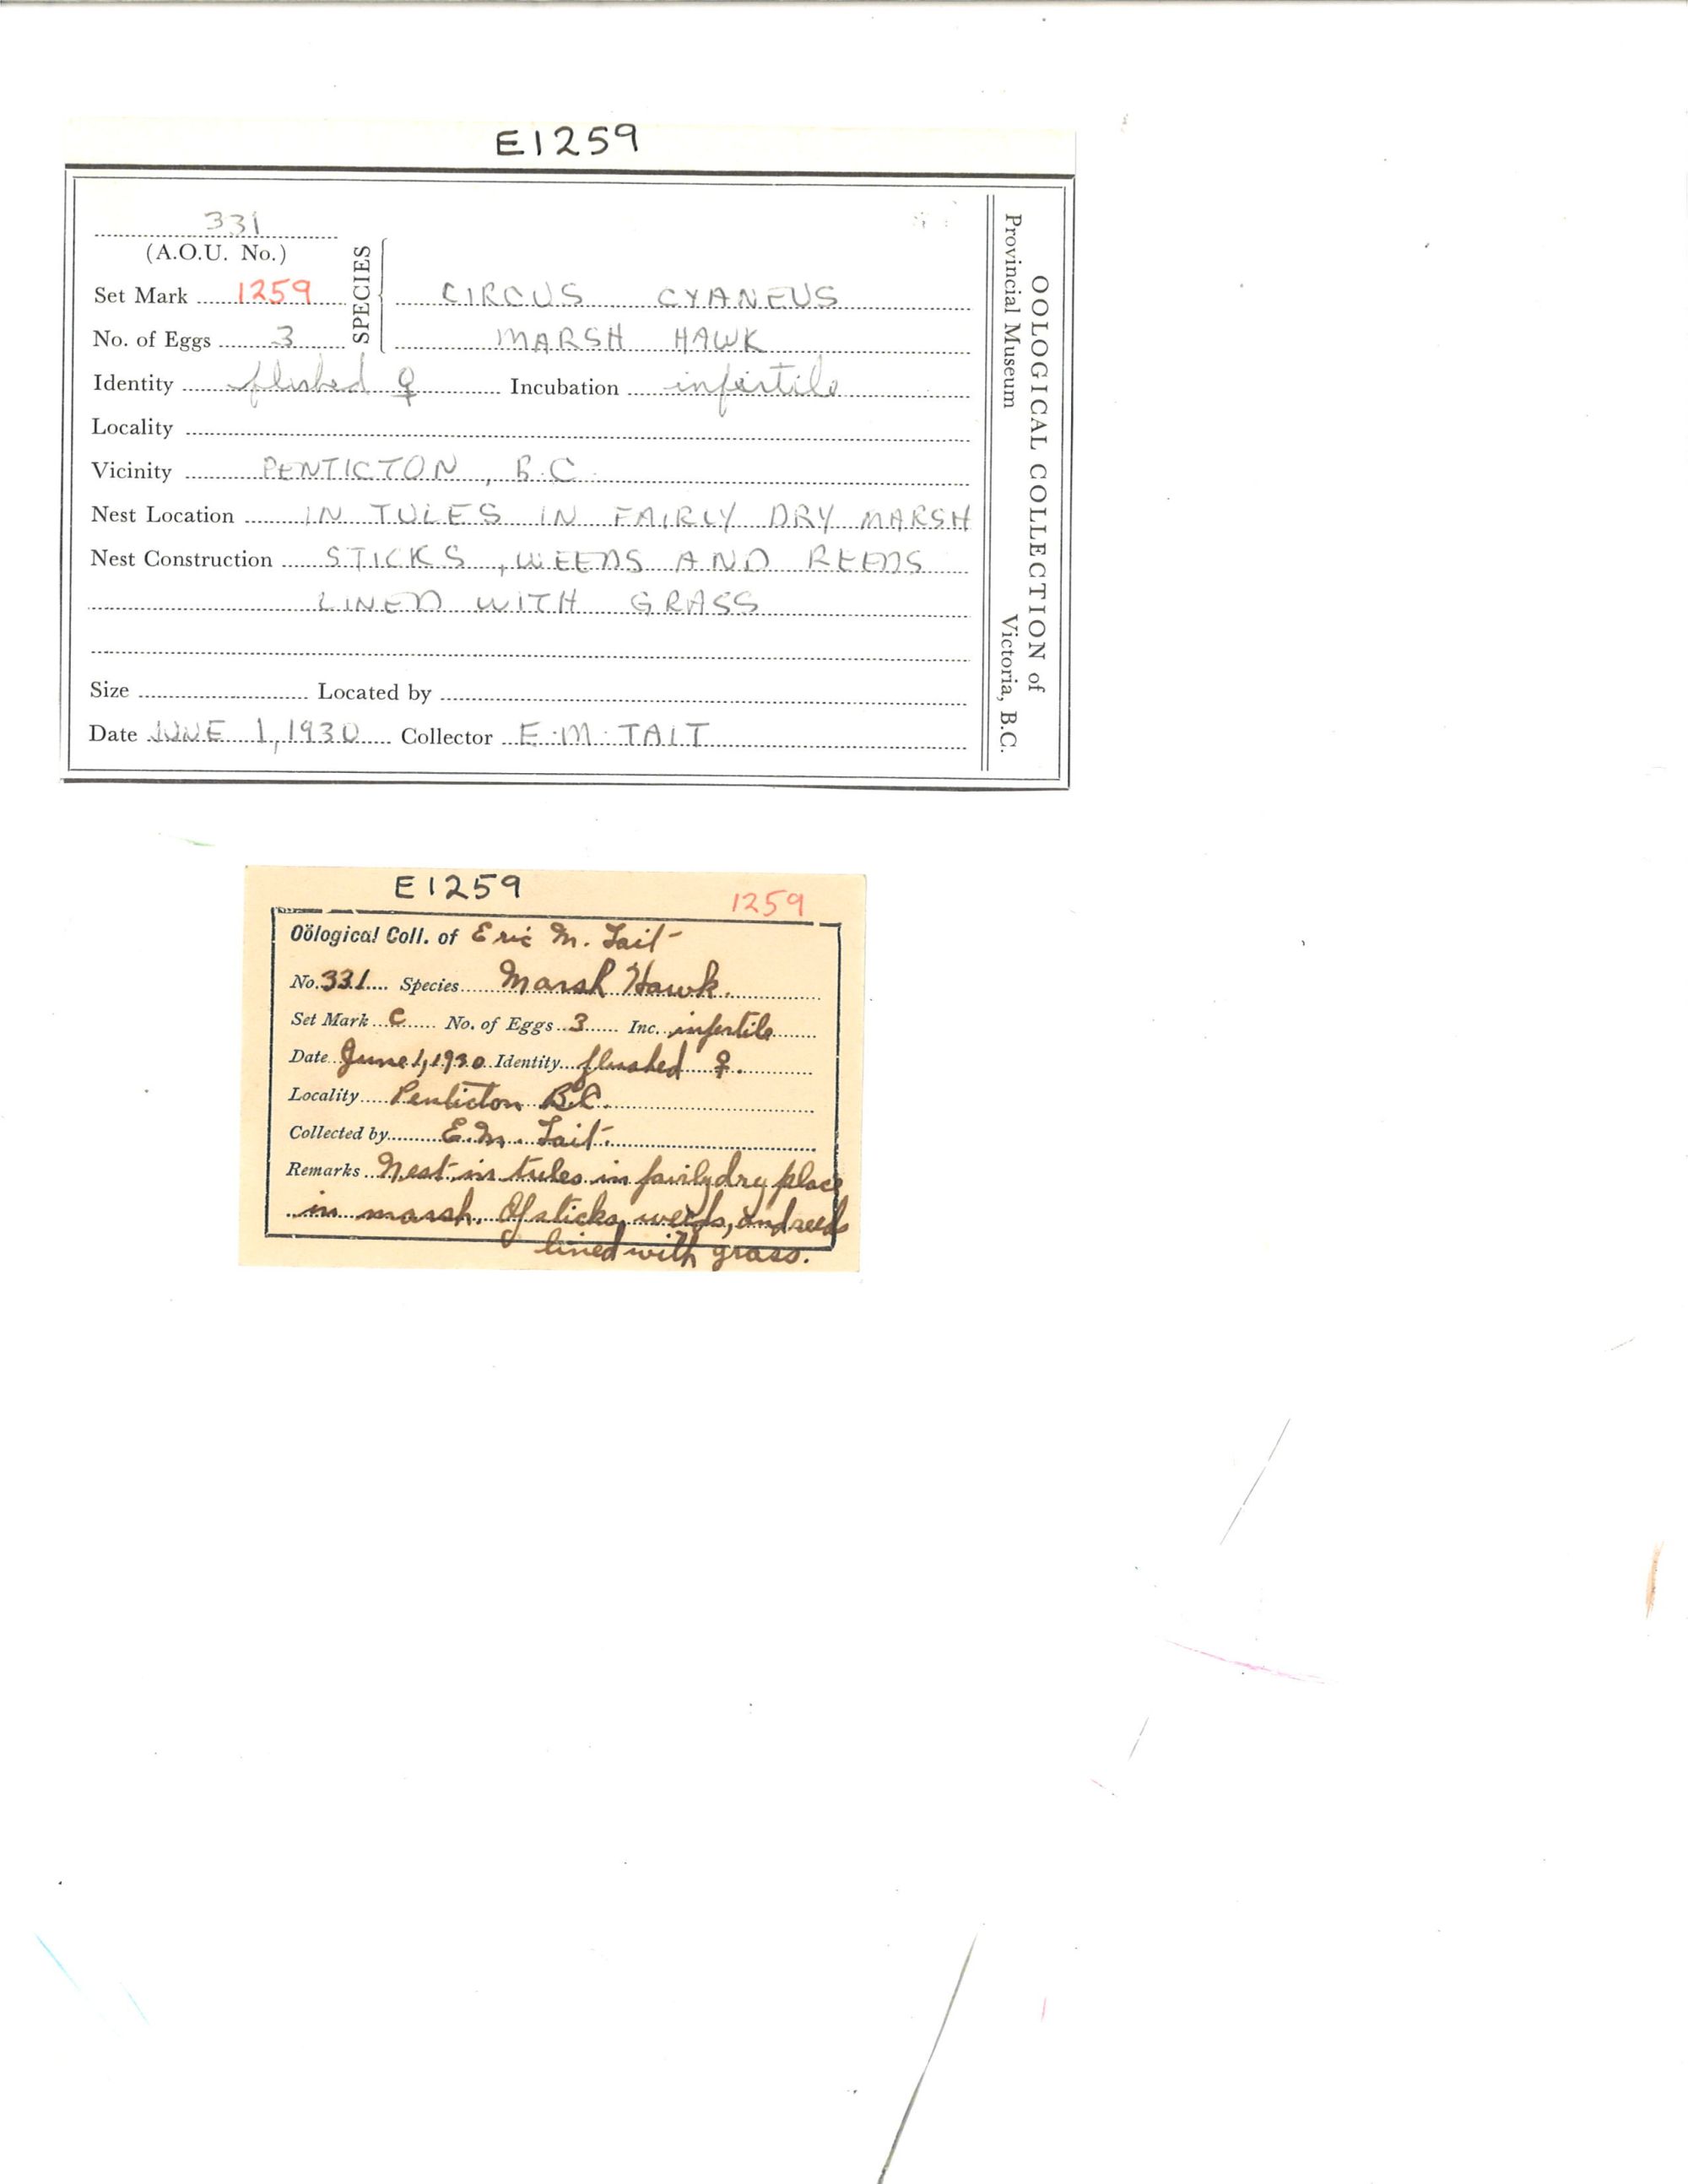 E1259
331
(A.O.U. No.)
Set Mark 1259
SPECIES
CIRCUS CYANEUS
No. of Eggs 3
MARSH HAWK
Identity flushed ♀ Incubation infertile
Locality
Vicinity PENTICTON, B.C.
Nest Location IN TULES IN FAIRLY DRY MARSH
Nest Construction STICKS, WEEDS AND REEDS
LINED WITH GRASS
Size Located by
Date JUNE 1, 1930 Collector E.M. TAIT
OOLOGICAL COLLECTION of
Provincial Museum Victoria, B.C.
E1259
1259
Oölogical Coll. of Eric M. Tait
No. 331 Species Marsh Hawk.
Set Mark C No. of Eggs 3 Inc. infertile
Date June 1, 1930 Identity flushed ♀.
Locality Penticton B.C.
Collected by E.M. Tait.
Remarks Nest in tules in fairly dry place
in marsh. Of sticks, weeds, and reeds
lined with grass.